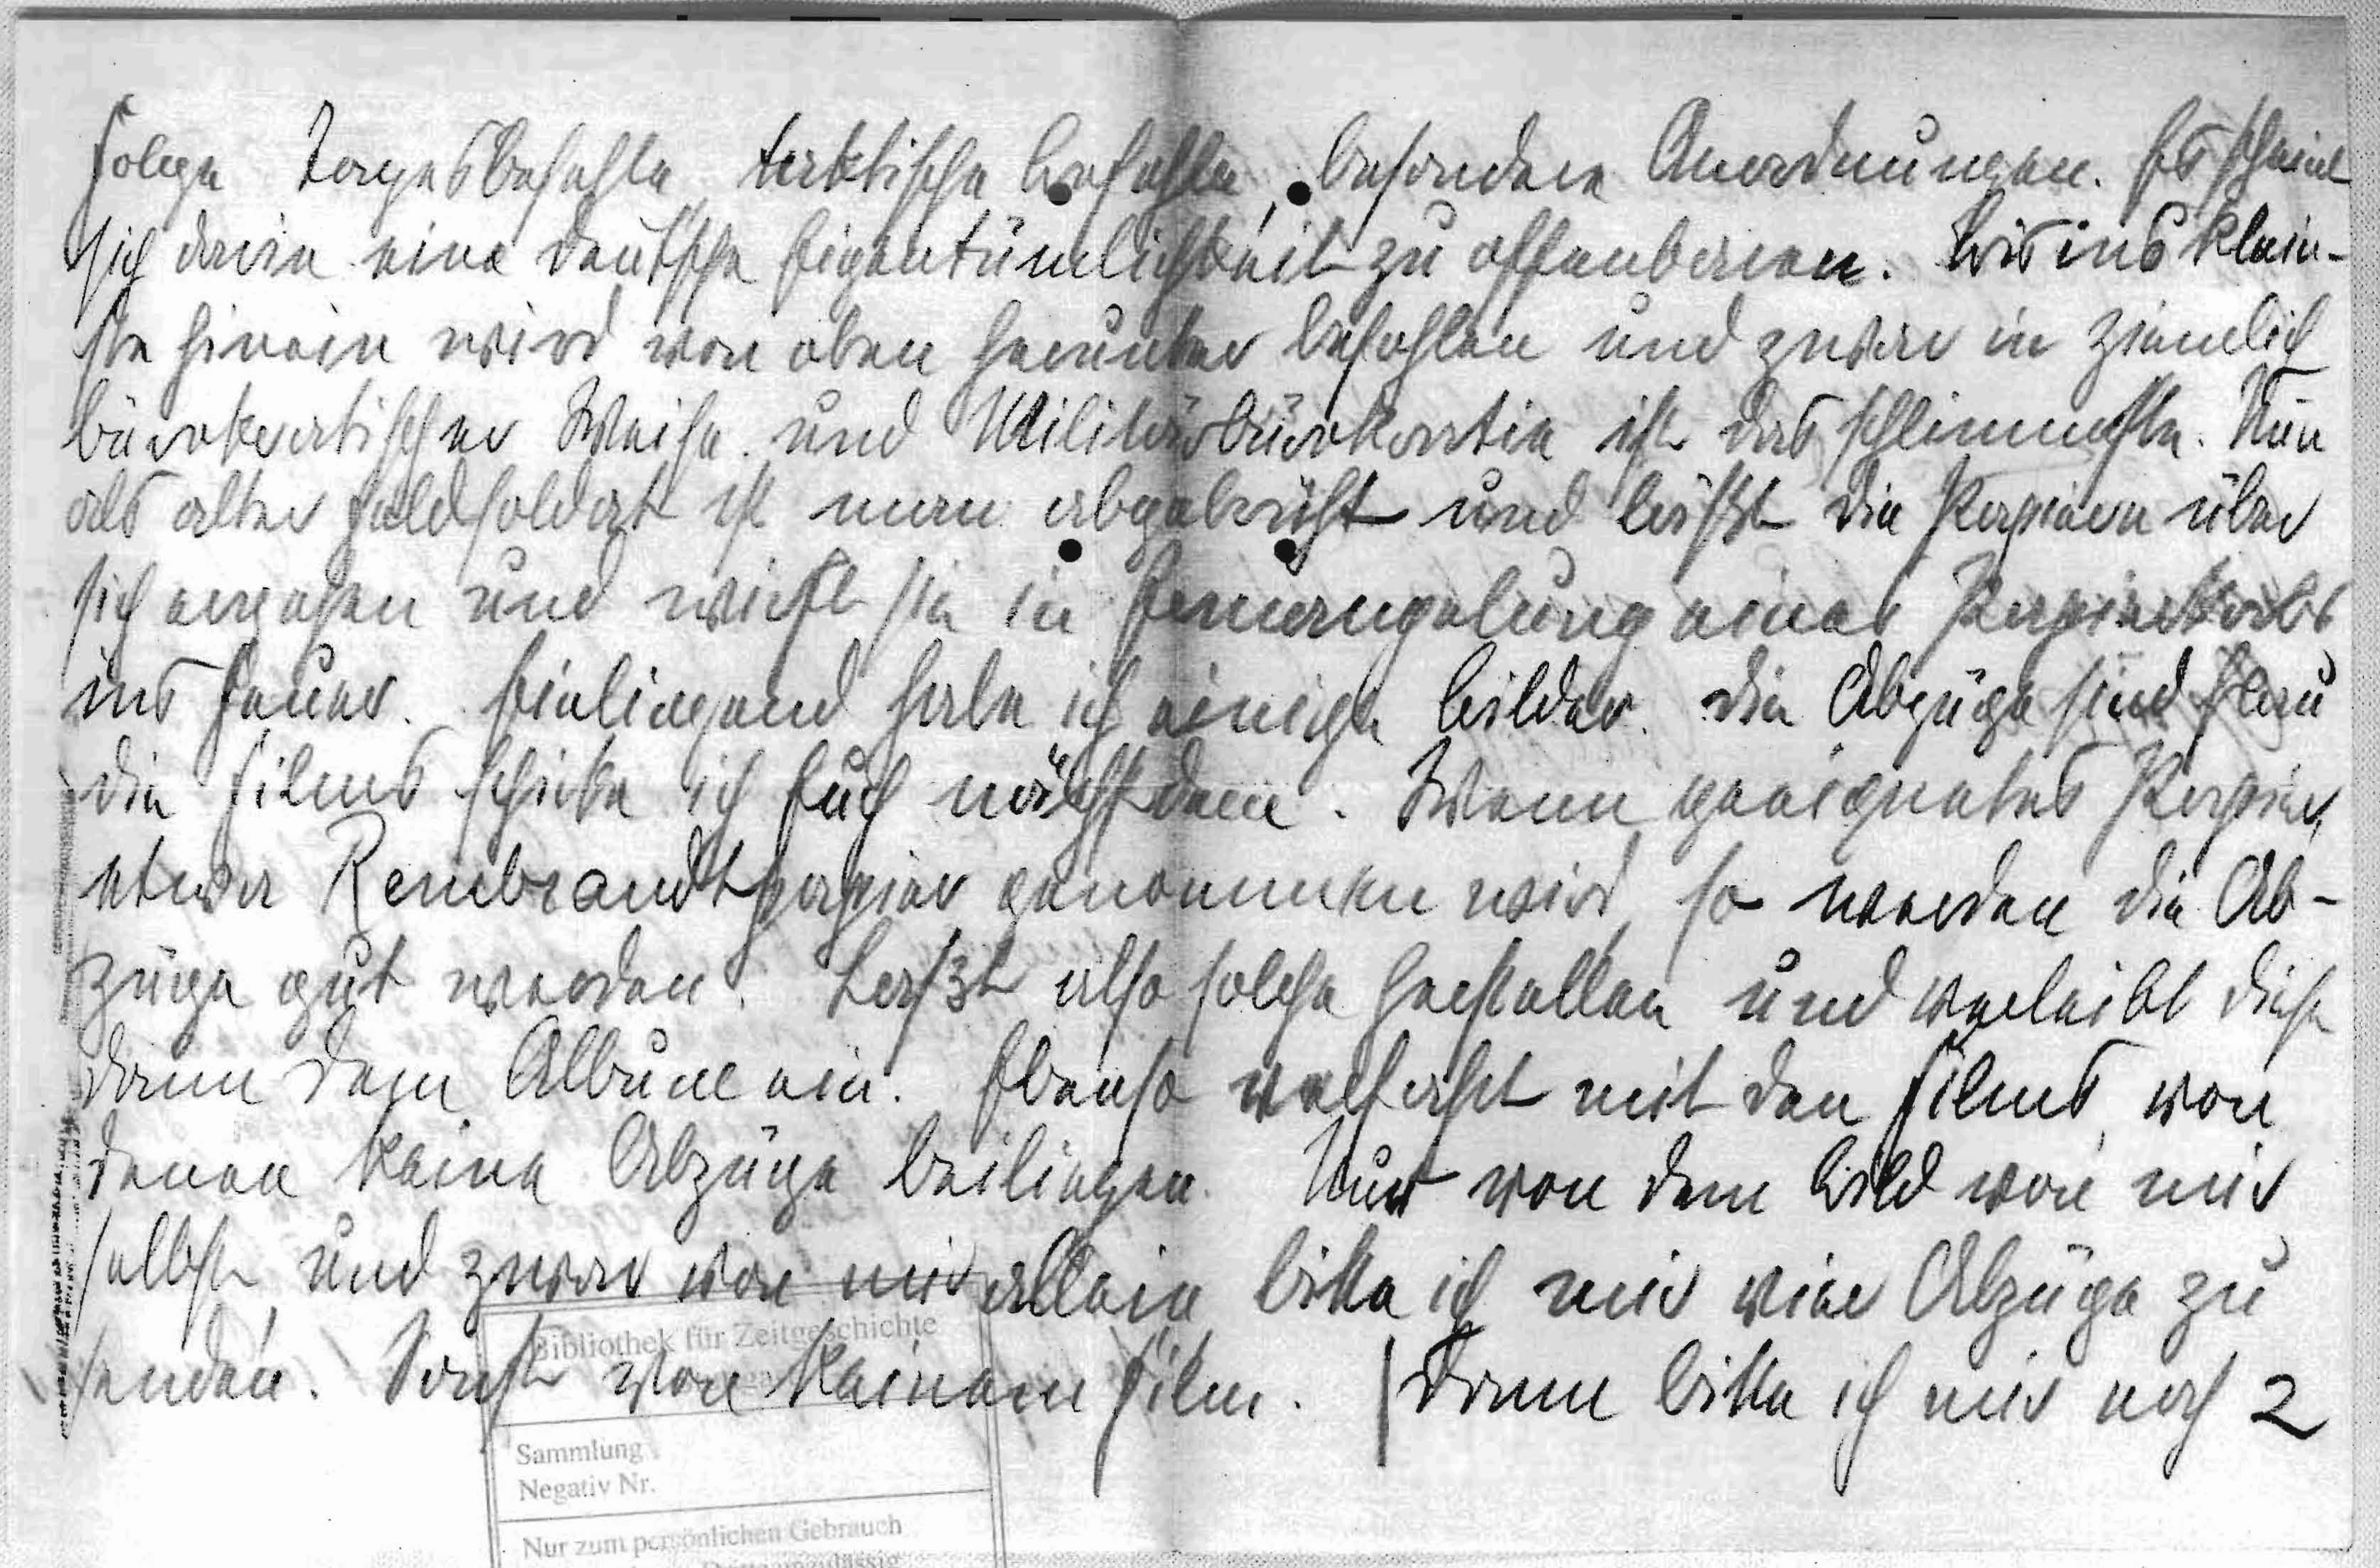 folge Tagesbefehle, taktische Befehle, besondere Anordnungen. Es scheint
sich darin eine deutsche Eigentümlichkeit zu offenbaren. Bis ins Klein-
ste hinein wird von oben herunter befohlen und zwar in ziemlich
bürokratischer Weise. und Militärbürokratie ist das schlimmste. Nun
als alter Feldsoldat ist man abgebrüht und läßt die Papiere über
sich ergehen und wirft sie in Ermangelung eines Papierkorbs
ins Feuer. Einliegend habe ich einige Bilder. Die Abzüge sind flau
die Films schicke ich Euch nächstdem. Wenn geeignetes Papier,
etwa Rembrandtpapier genommen wird, so werden die Ab-
züge gut werden. Laßt also solche herstellen und verleibt diese
dann dem Album ein. Ebenso verfahrt mit den Films, von
denen keine Abzüge beiliegen. Nur von dem Bild von mir
selbst und zwar von mir allein bitte ich mir vier Abzüge zu
senden. Sonst von keinem Film. | Dann bitte ich mir noch 2
Bibliothek für Zeitgeschichte
Sammlung
Negativ Nr.
Nur zum persönlichen Gebrauch